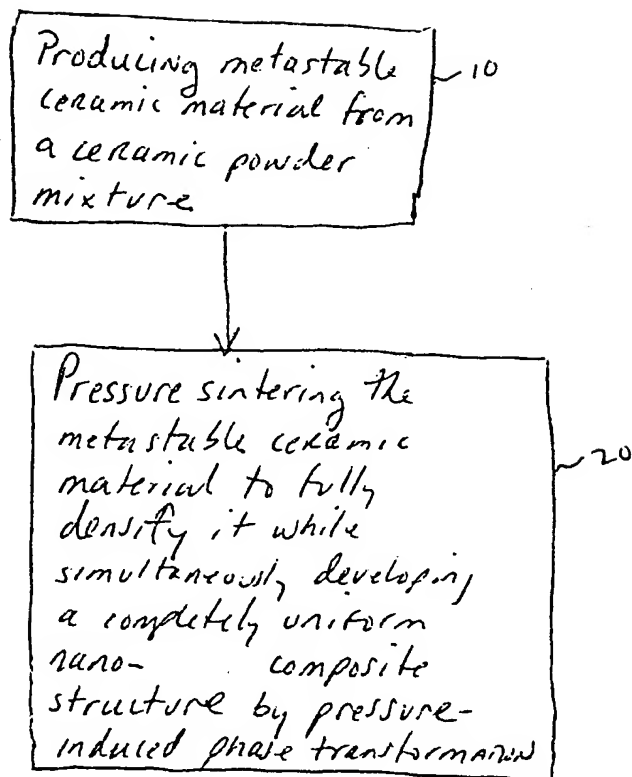 Producing metastable
10
ceramic material from
a ceramic powder
mixture
Pressure sintering the
metastable ceramic
material to fully
20
densify it while
simultaneously developing
a completely uniform
nano- composite
structure by pressure-
induced phase transformation